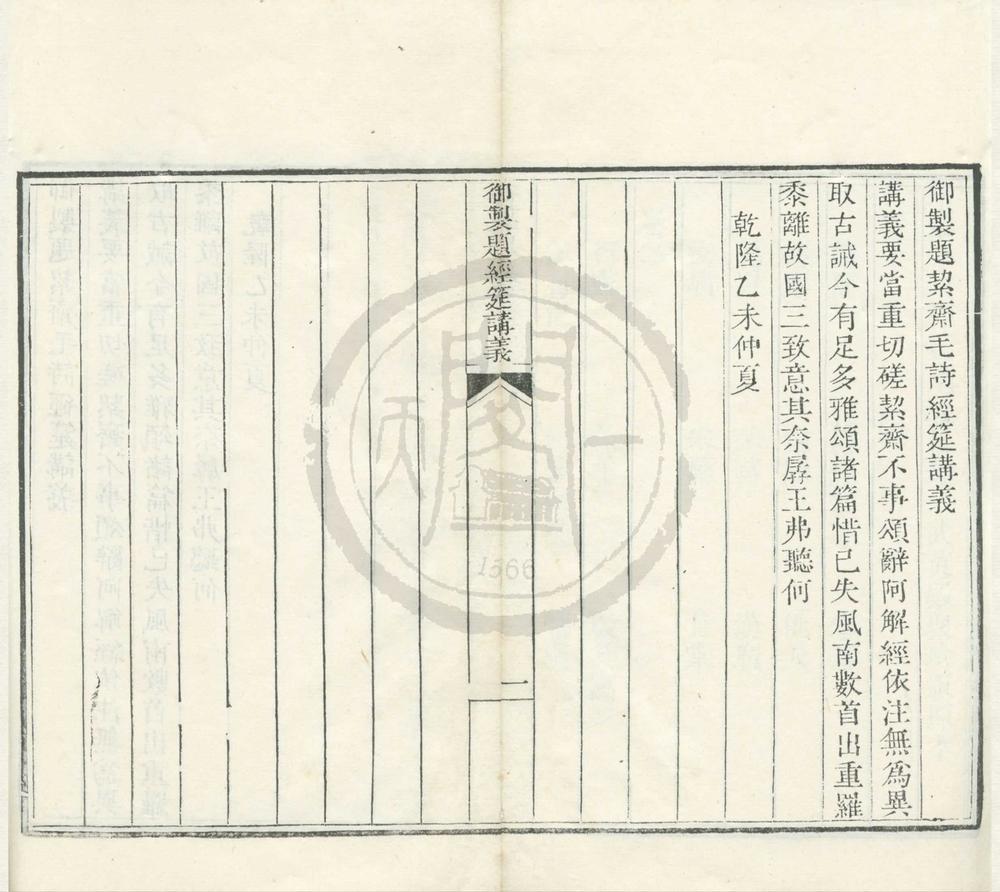 御製題絜齋毛詩經筵講義
講義要當重切磋絜齋不事頌辭阿解經依注無爲異
取古誡今有足多雅頌諸篇惜已失風南數首出重羅
黍離故國三致意其奈孱王弗聽何
乾隆乙未仲夏
御製題經筵講義
一
天一閣
1566